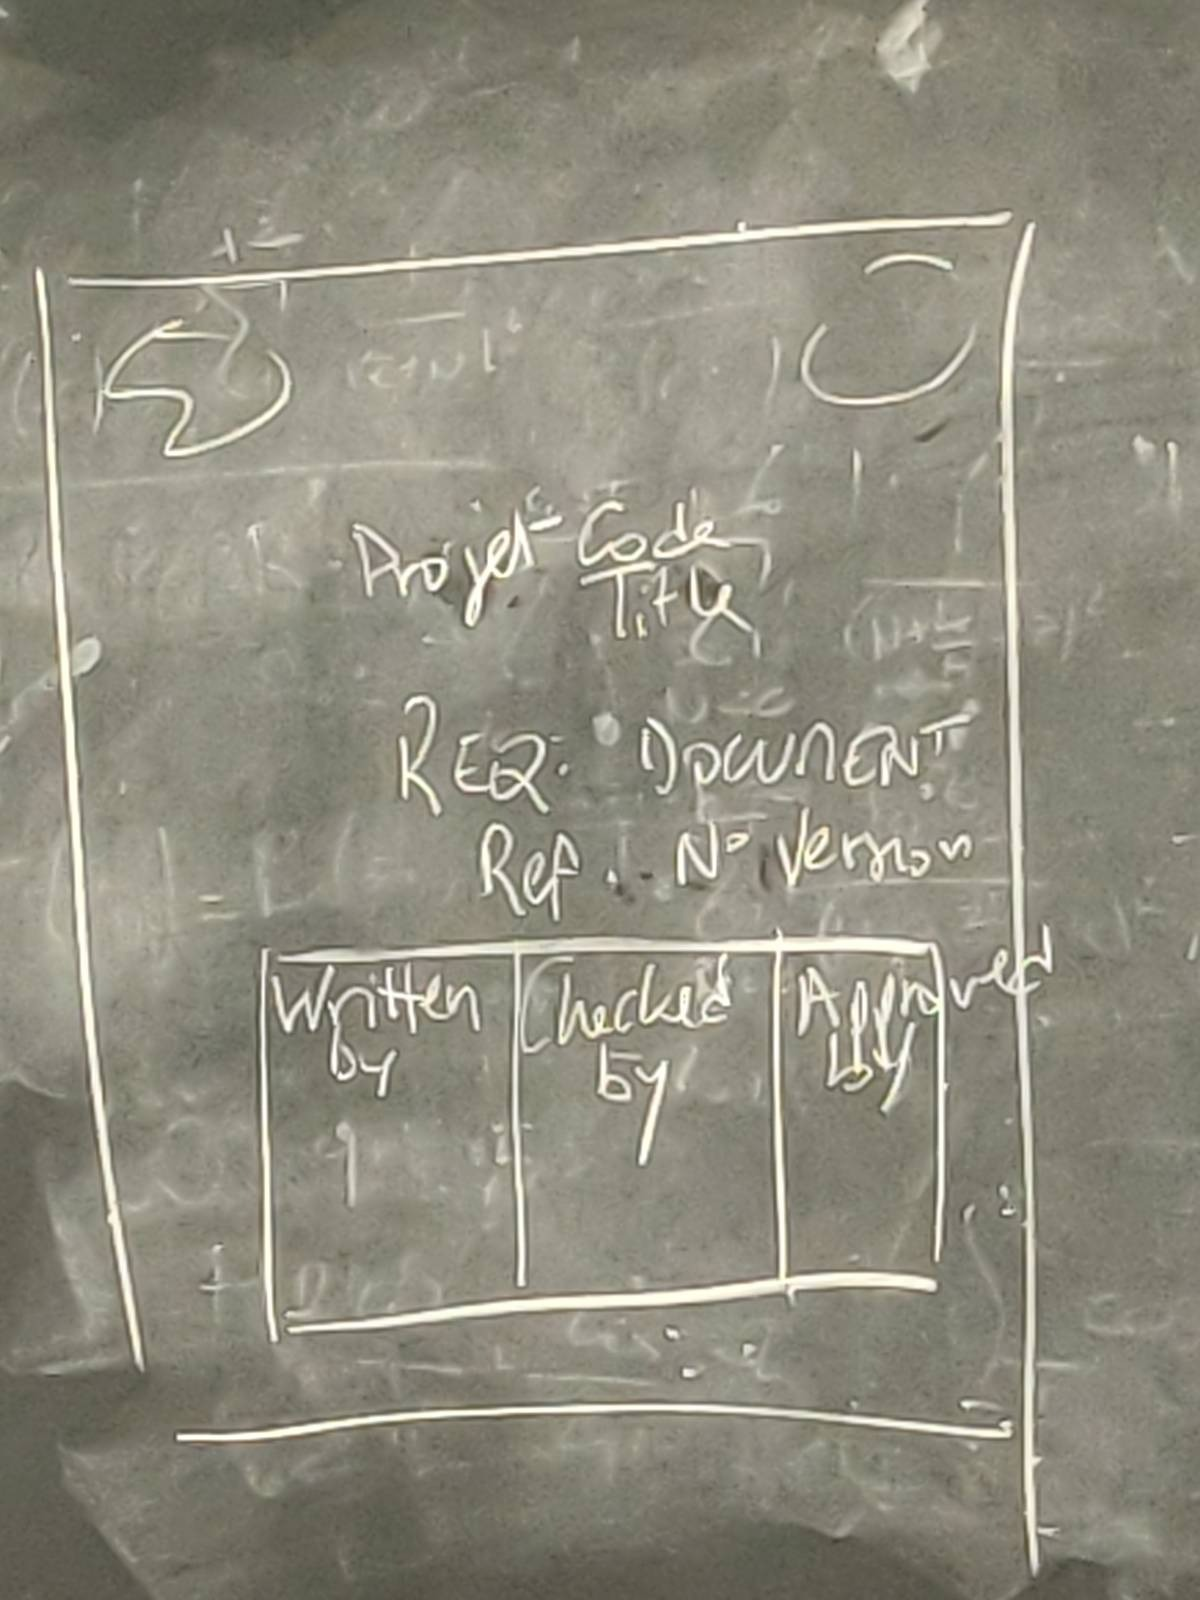 Projet Code
Title
REQ. DOCUMENT
Ref. N° Version
Written by
Checked by
Approved by